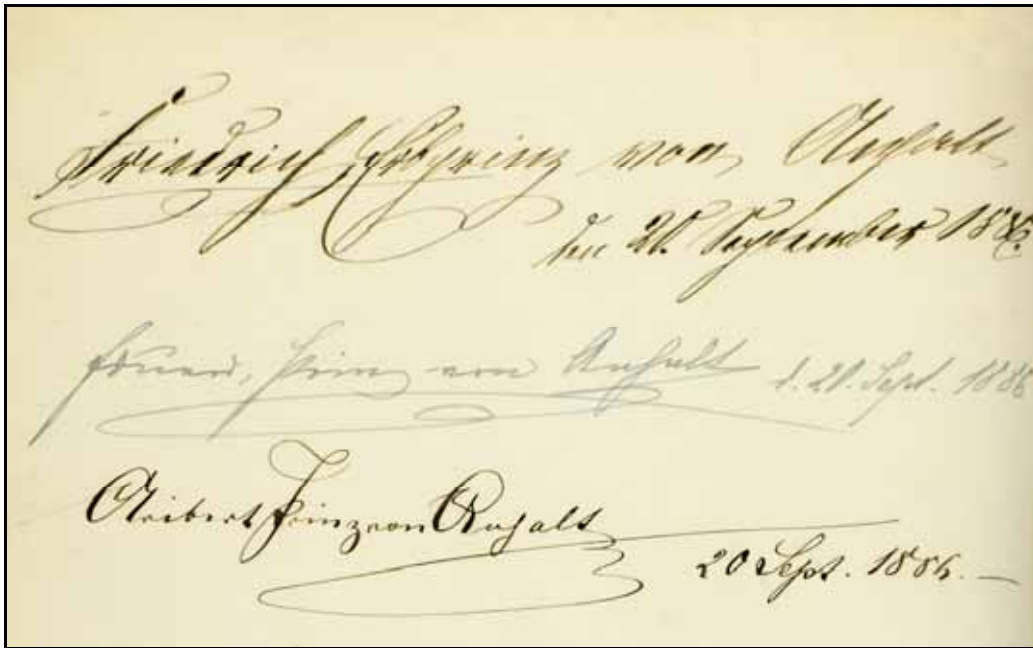 Friedrich Erbprinz von Anhalt
den 20. September 1886.
Eduard, Prinz von Anhalt d. 20. Sept. 1886
Aribert Prinz von Anhalt
20 Sept. 1886.